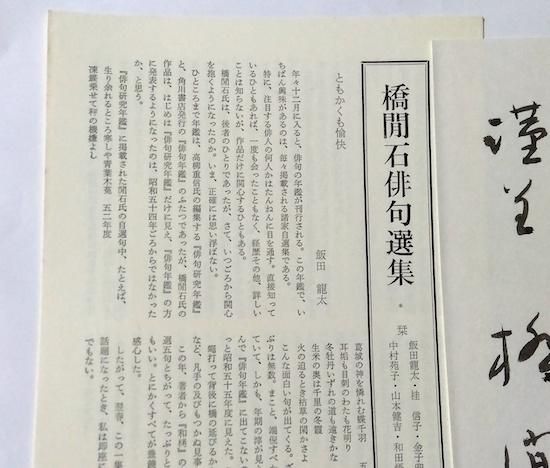 橋閒石俳句選集
栞
飯田龍太・桂 信子・金子
中村苑子・山本健吉・和田
ともかくも愉快
飯田 龍太
年々十二月に入ると、俳句の年鑑が刊行される。この年鑑で、い
ちばん興味があるのは、毎々掲載される諸家自選集である。
特に、注目する俳人の何人かはたんねんに目を通す。直接知って
いるひともあれば、一度も会ったこともなく、経歴その他、詳しい
ことは知らないが、作品だけに関心するひともある。
橋閒石氏は、後者のひとりであったが、さて、いつごろから関心
を抱くようになったのか。いま、正確には思い浮ばない。
ひところまで年鑑は、高柳重信氏の編集する『俳句研究年鑑』
と、角川書店発行の『俳句年鑑』のふたつであったが、橋閒石氏の
作品は、はじめは『俳句研究年鑑』だけに見え、『俳句年鑑』の方
に発表するようになったのは、昭和五十四年ごろからではなかった
か、と思う。
『俳句研究年鑑』に掲載された閒石氏の自選句中、たとえば、
生り余れるところ寒しや青葉木菟 五二年度
凍鶴乗せて秤の機嫌よし
葛城の神を懐れむ蝶千羽
耳垢も目刺のわたも花明り
冬牡丹いずれの道も遠きかな
生米の奥は千里の冬霞
火の迫るとき枯草の閑かさよ
こんな面白い句が出てくる。
ぶりは無数。まこと、端倪すべ
ていて、しかも、年期の滓が見
んで『俳句年鑑』に出てこない
っと昭和五十五年度に見えた。
蠅打って背後に橋の延びるか
など、凡手の及びもつかぬ見事
この年、著者から『和栲』の
週五句とちがって、たっぷりと
もいい。とにかくすべてが豊饒
感心した。
したがって、翌春、この一集
話題になったとき、私は即座に
でもない。
謹呈
橋